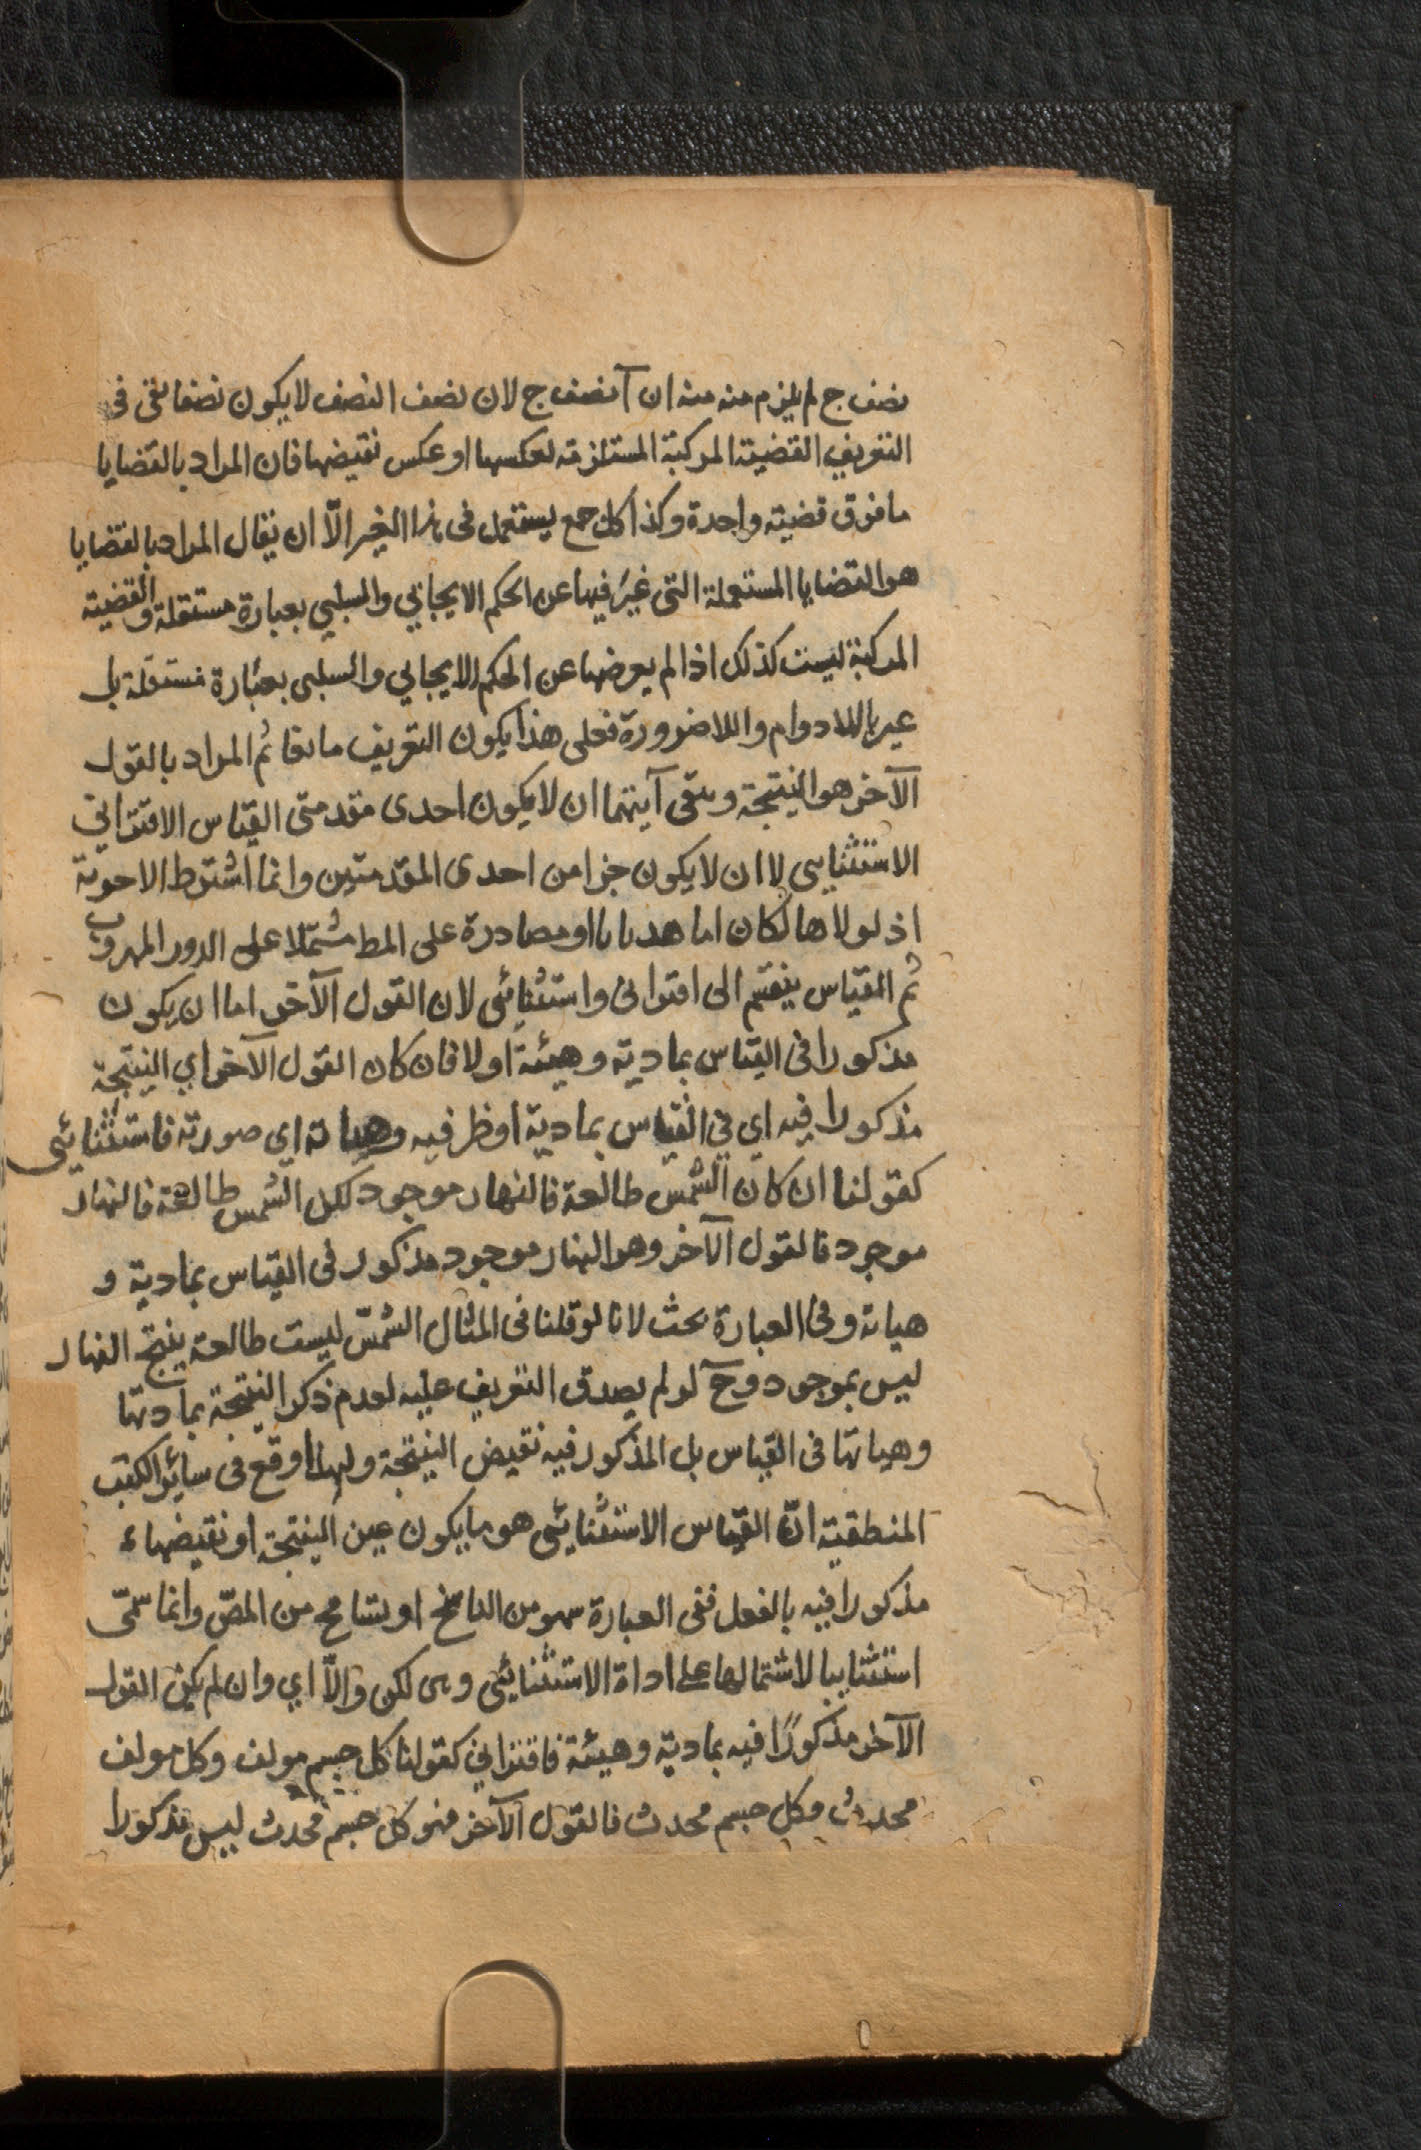 نصف ج لم يلزم منه منه ان آ نصف ج لان نصف النصف لا يكون نصفا بقى فى
التعريف القضية المركبة المستلزمة لعكسها او عكس نقيضها فان المراد بالقضايا
ما فوق قضية واحدة وكذا كل جمع يستعمل فى هذا الـ الاّ ان يقال المراد بالقضايا
هو القضايا المستعملة التى عبر فيها عن الحكم الايجابي والسلبي بعبارة مستقلة والقضية
المركبة ليست كذلك اذا لم يعبر فيها عن الحكم الايجابي والسلبى بعبارة مستقلة بل
عبر باللادوام واللاضرورة فعلى هذا يكون التعريف مانعا ثم المراد بالقول
الآخر هو النتيجة وبقى ان لا يكون احدى مقدمتى القياس الاقترانى
الاستثنايى لا ان لا يكون جزا من احدى المقدمتين وانما اشترط الاخرية
اذ لولاها لكان اما هديانا او مصادرة على المط مشتملا على الدور المهروب
ثم القياس ينقسم الى اقترانى واستثنائى لان القول الآخر اما ان يكون
مذكورا فى القياس بماديته وهيئة اولا فان كان القول الآخر اي النتيجة
مذكورا فيه اي في القياس بماديته او ظرفيه وهياته اي صورته فاستثنائى
كقولنا ان كان الشمس طالعة فالنهار موجود لكن الشمس طالعة فالنهار
موجود فالقول الآخر وهو النهار موجود مذكور فى القياس بماديته و
هياته وفى العبارة بحث لانا لو قلنا فى المثال الشمس ليست طالعة ينتج النهار
ليس بموجود وح لو لم يصدق التعريف عليه لعدم ذكر النتيجة بمادتها
وهياتها فى القياس بل المذكور فيه نقيض النتيجة ولهذا وقع فى سائر الكتب
المنطقية انّ القياس الاستثنائى هو ما يكون عين النتيجة او نقيضها
مذكورا فيه بالفعل ففى العبارة سهو من الناسخ او تسامح من المصّ وانما سمّى
استثنايا لاشتمالها على اداة الاستثنائى وهى لكن والاّ اي وان لم يكن القول
الآخر مذكورًا فيه بماديته وهيئة فاقترانى كقولنا كل جسم مولف وكل مولف
محدث فكل جسم محدث فالقول الآخر فهو كل جسم محدث ليس مذكورا